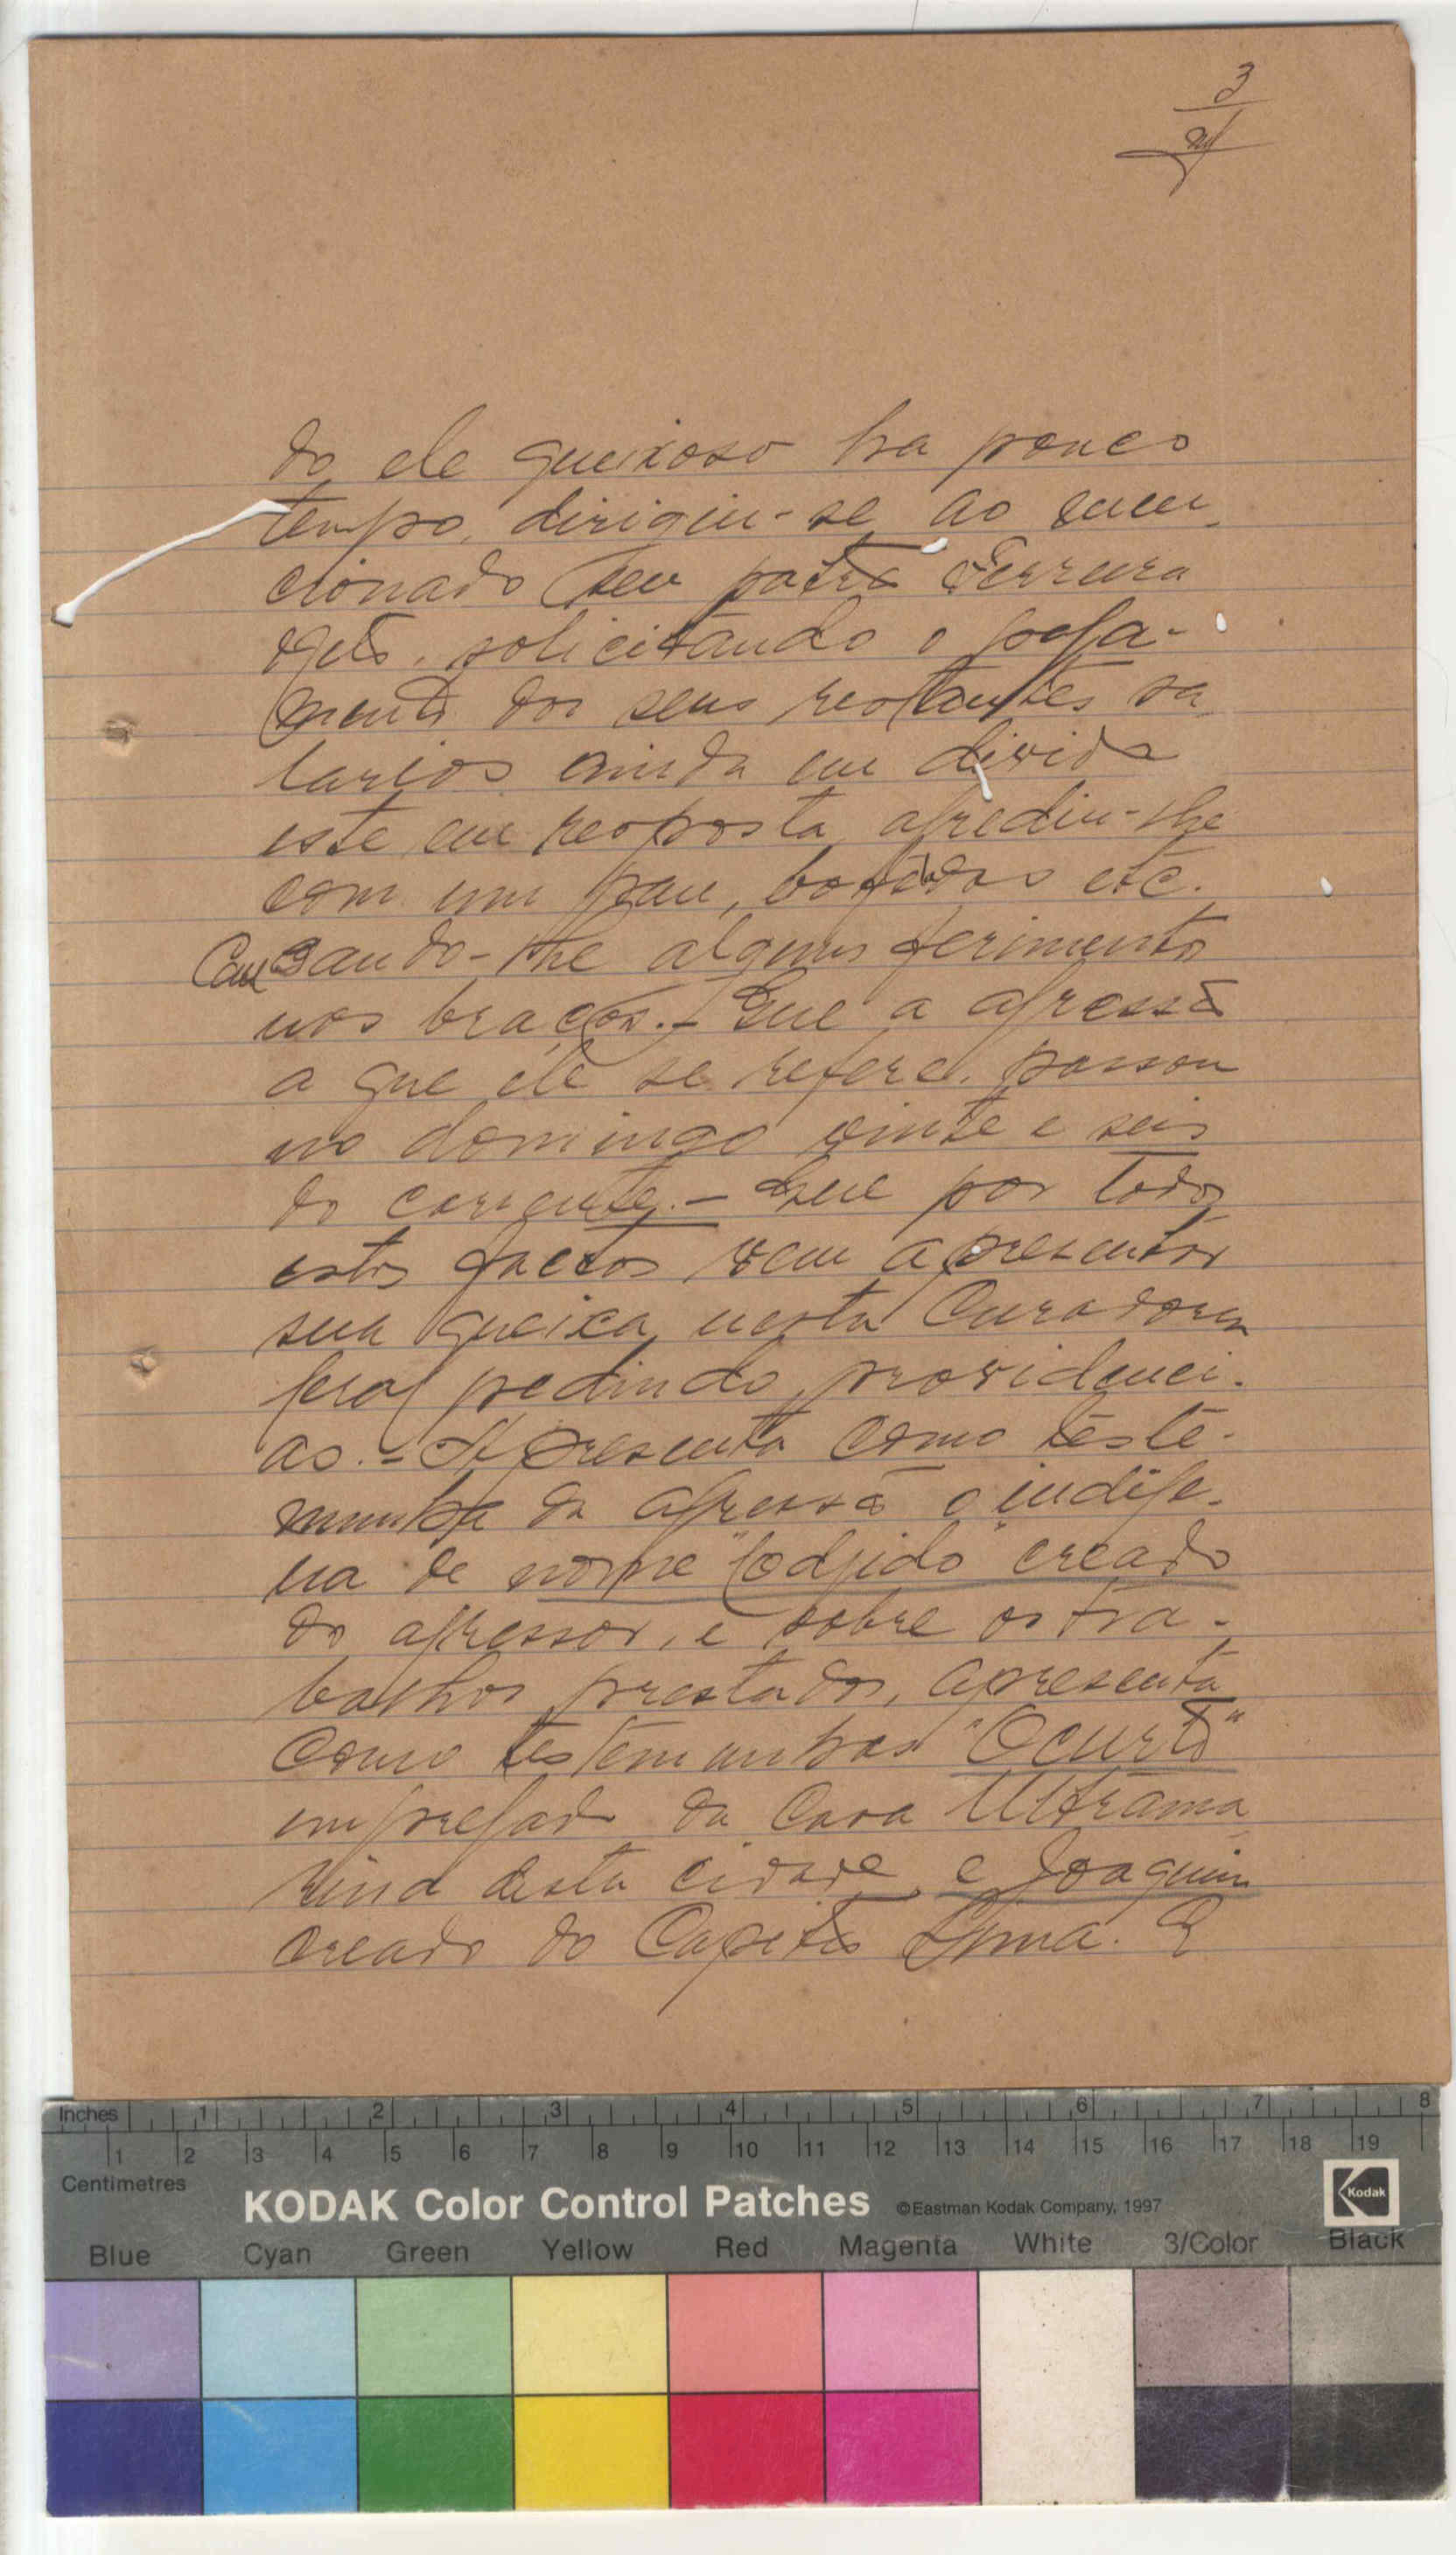 3
do ele queixoso ha pouco
tempo, dirigiu-se ao men-
cionado seu patrão Ferreira
solicitando o paga-
mento dos seus restantes sa
larios ainda em divida
este em resposta, agrediu-lhe
com um pau, bofetadas etc.
Causando-lhe alguns ferimentos
nos braços. - Que a agressão
a que ele se refere, passou
no domingo vinte e seis
do corrente. - Que por todos
estes factos vem apresentar
sua queixa nesta Curadoria
Geral pedindo providenci-
as. - Apresenta como teste-
munha da agressão o indige-
na de nome "Codjido" creado
do agressor, e sobre os tra-
balhos prestados, apresenta
como testemunhas "Ocurtò"
empregado da Casa Ultrama
rina desta cidade, e Joaquim
creado do Capitão Lima. E
Inches 1 2 3 4 5 6 7 8
1 2 3 4 5 6 7 8 9 10 11 12 13 14 15 16 17 18 19
Centimetres
KODAK Color Control Patches ©Eastman Kodak Company, 1997 Kodak
Blue Cyan Green Yellow Red Magenta White 3/Color Black